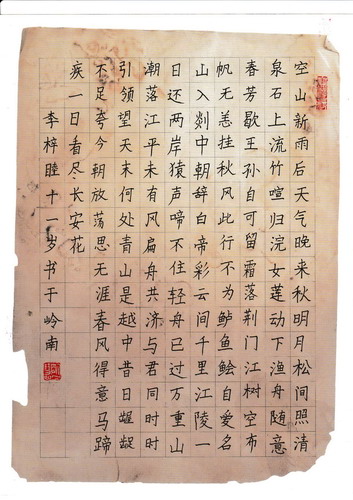 空山新雨后天气晚来秋明月松间照清
泉石上流竹喧归浣女莲动下渔舟随意
春芳歇王孙自可留霜落荆门江树空布
帆无恙挂秋风此行不为鲈鱼鲙自爱名
山入剡中朝辞白帝彩云间千里江陵一
日还两岸猿声啼不住轻舟已过万重山
潮落江平未有风扁舟共济与君同时时
引领望天末何处青山是越中昔日龌龊
不足夸今朝放荡思无涯春风得意马蹄
疾一日看尽长安花
李梓睦十一岁书于岭南